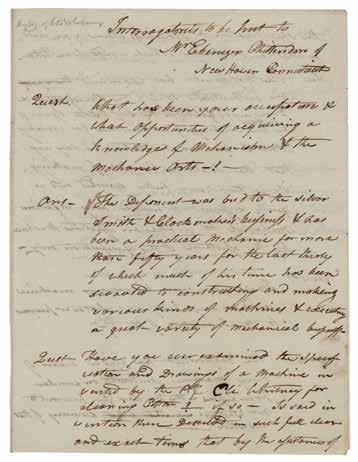 Interrogatories to be put to
Mr Ebenezer Chittendon of
New Haven Connecticut
Quest. What has been your occupation &
what opportunities of acquiring a
knowledge of Mechanism & the
Mechanic Arts —?—
Ans — The Deponent was bred to the silver
Smith & Clockmaker's business & has
been a practical Mechanic for more
than fifty years for the last thirty
of which much of his time has been
devoted to constructing and making
various kinds of machines & executing
a great variety of mechanical
Quest Have you ever examined the specifi
cation and Drawings of a Machine in
vented by the Eli Whitney for
cleaning ? if so — Is said in
vention there Described in such full clear
and exact terms that by the assistance of